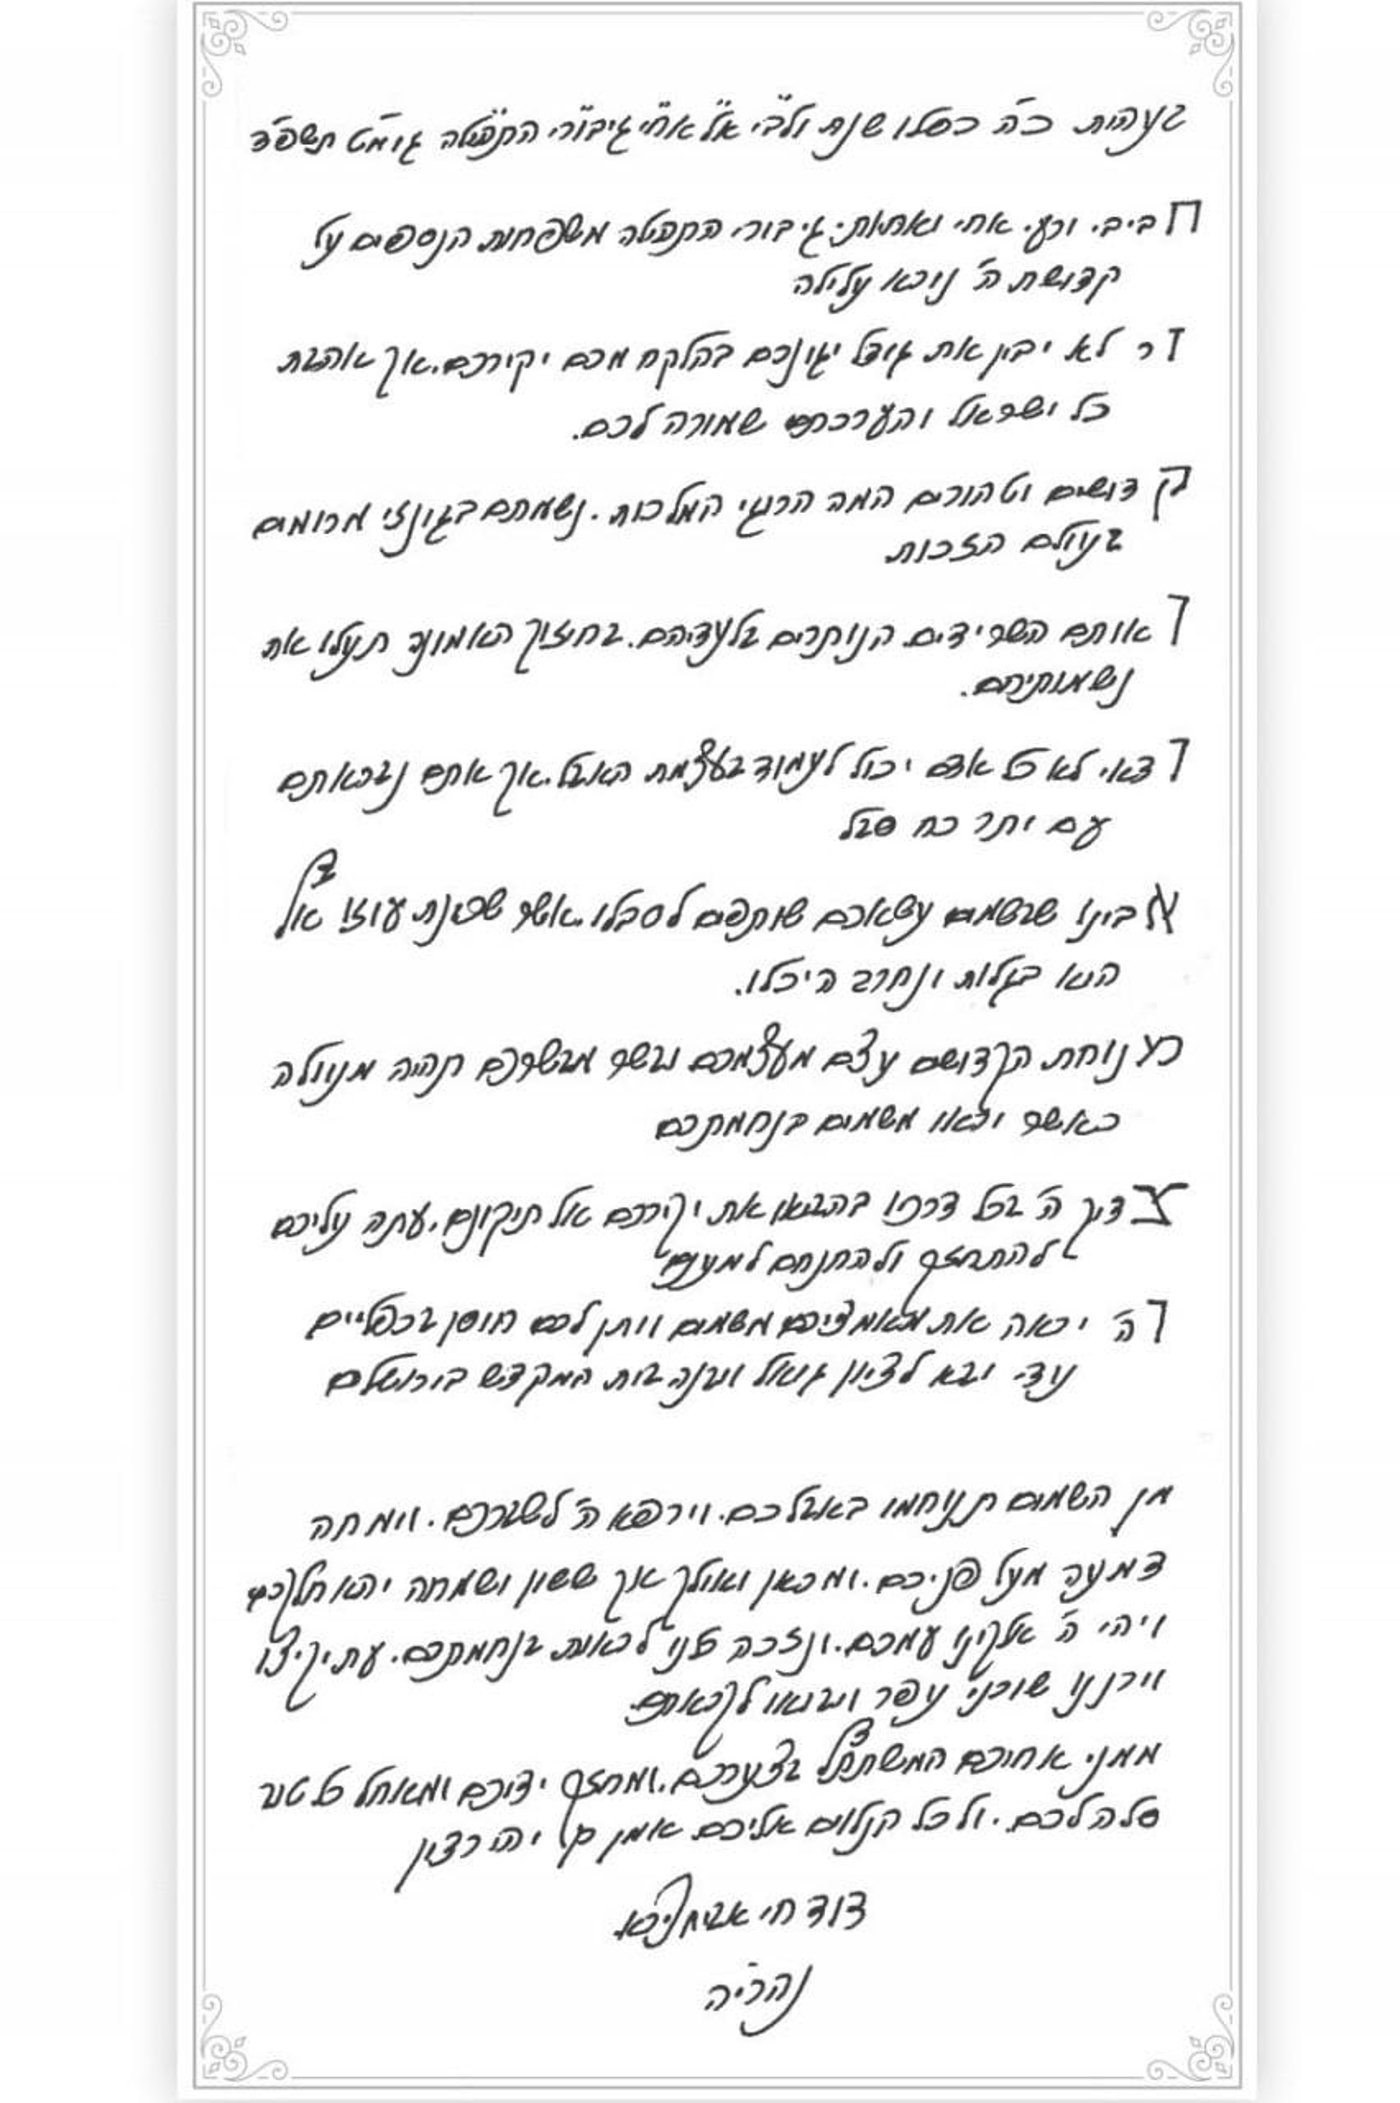 בעהית כ"ה כסלו שנת ולבי אל אחי גיבורי התהילה גוימט תשפ"ד
חביבי ורעי אחי ואחותי גיבורי התהילה משפחות הנספים על
קדושת ה' נורא עלילה
זר לא יבין את גודל יגונכם בהלקח מכם יקירכם. אך אהבת
כל ישראל והערכתם שמורה לכם.
קדושים וטהורים המה הרוגי המלכות. נשמתם בגונזי מרומים
בעולם הזכות
ואותם השרידים הנותרים בלעדיהם. בחיזוק האמונה תעלו את
נשמותיהם.
ודאי לא כל אדם יכול לעמוד בעצמת האבל. אך אתם נבראתם
עם יותר כח סבל
אבינו שבשמים עשאכם שותפים לסבלו. אשר שכינת עוזו אצל
הוא בגלות ונחרב היכלו.
נוחת הקדושים עצם מעצמכם ובשר מבשרכם תהיה מנוולה
כאשר יראו משמים בנחמתכם
צדיק ה' בכל דרכיו בהביאו את יקירכם אל תיקונם, עתה עליכם
להתחזק ולהתנחם למענם
וה' יראה את מאמציכם משמים ויתן לכם חוסן בכפליים
עדי יבא לציון גואל ויבנה בית המקדש בירושלים
מן השמים תנוחמו באבלכם. וירפא ה' לשברכם. וימחה
דמעה מעל פניכם. ומכאן ואילך אך ששון ושמחה יהא חלקכם
ויהי ה' אלקינו עמכם. ונזכה כולנו לראות בנחמתכם. עת יקיצו
וירננו שוכני עפר ויבואו לקראתם.
ממני אחיכם המשתתף בצערכם. ומחזק ידיכם ומאחל כל טוב
סלה לכם. ולכל הנלוים אליכם אמן כן יהי רצון
דוד חי אבוחצירא
נהריה